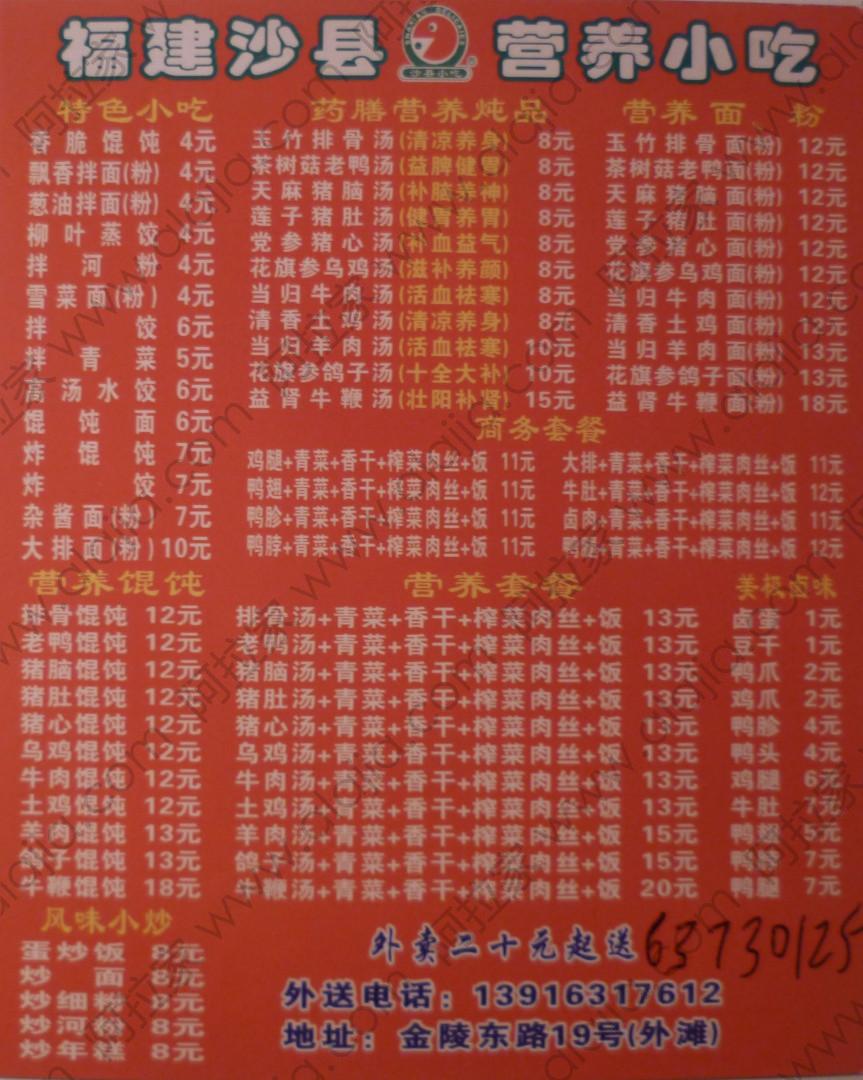 福建沙县
沙县小吃
营养小吃
特色小吃
香脆馄饨 4元
飘香拌面(粉) 4元
葱油拌面(粉) 4元
柳叶蒸饺 4元
拌河粉 4元
雪菜面(粉) 4元
拌饺 6元
拌青菜 5元
高汤水饺 6元
馄饨面 6元
炸馄饨 7元
炸饺 7元
杂酱面(粉) 7元
大排面(粉) 10元
药膳营养炖品
玉竹排骨汤(清凉养身) 8元
茶树菇老鸭汤(益脾健胃) 8元
天麻猪脑汤(补脑养神) 8元
莲子猪肚汤(健胃养胃) 8元
党参猪心汤(补血益气) 8元
花旗参乌鸡汤(滋补养颜) 8元
当归牛肉汤(活血祛寒) 8元
清香土鸡汤(清凉养身) 8元
当归羊肉汤(活血祛寒) 10元
花旗参鸽子汤(十全大补) 10元
益肾牛鞭汤(壮阳补肾) 15元
营养面、粉
玉竹排骨面(粉) 12元
茶树菇老鸭面(粉) 12元
天麻猪脑面(粉) 12元
莲子猪肚面(粉) 12元
党参猪心面(粉) 12元
花旗参乌鸡面(粉) 12元
当归牛肉面(粉) 12元
清香土鸡面(粉) 12元
当归羊肉面(粉) 13元
花旗参鸽子面(粉) 13元
益肾牛鞭面(粉) 18元
商务套餐
鸡腿+青菜+香干+榨菜肉丝+饭 11元
鸭翅+青菜+香干+榨菜肉丝+饭 11元
鸭胗+青菜+香干+榨菜肉丝+饭 11元
鸭脖+青菜+香干+榨菜肉丝+饭 11元
大排+青菜+香干+榨菜肉丝+饭 11元
牛肚+青菜+香干+榨菜肉丝+饭 12元
卤肉+青菜+香干+榨菜肉丝+饭 11元
鸭腿+青菜+香干+榨菜肉丝+饭 12元
营养馄饨
排骨馄饨 12元
老鸭馄饨 12元
猪脑馄饨 12元
猪肚馄饨 12元
猪心馄饨 12元
乌鸡馄饨 12元
牛肉馄饨 12元
土鸡馄饨 12元
羊肉馄饨 13元
鸽子馄饨 13元
牛鞭馄饨 18元
营养套餐
排骨汤+青菜+香干+榨菜肉丝+饭 13元
老鸭汤+青菜+香干+榨菜肉丝+饭 13元
猪脑汤+青菜+香干+榨菜肉丝+饭 13元
猪肚汤+青菜+香干+榨菜肉丝+饭 13元
猪心汤+青菜+香干+榨菜肉丝+饭 13元
乌鸡汤+青菜+香干+榨菜肉丝+饭 13元
牛肉汤+青菜+香干+榨菜肉丝+饭 13元
土鸡汤+青菜+香干+榨菜肉丝+饭 13元
羊肉汤+青菜+香干+榨菜肉丝+饭 15元
鸽子汤+青菜+香干+榨菜肉丝+饭 15元
牛鞭汤+青菜+香干+榨菜肉丝+饭 20元
姜极卤味
卤蛋 1元
豆干 1元
鸭爪 2元
鸡爪 2元
鸭胗 4元
鸭头 4元
鸡腿 6元
牛肚 7元
鸭翅 5元
7元
鸭腿 7元
风味小炒
蛋炒饭 8元
炒面 8元
炒细粉 8元
炒河粉 8元
炒年糕 8元
外卖二十元起送 63730125
外送电话：13916317612
地址：金陵东路19号(外滩)
阿拉家 www.alajia.com